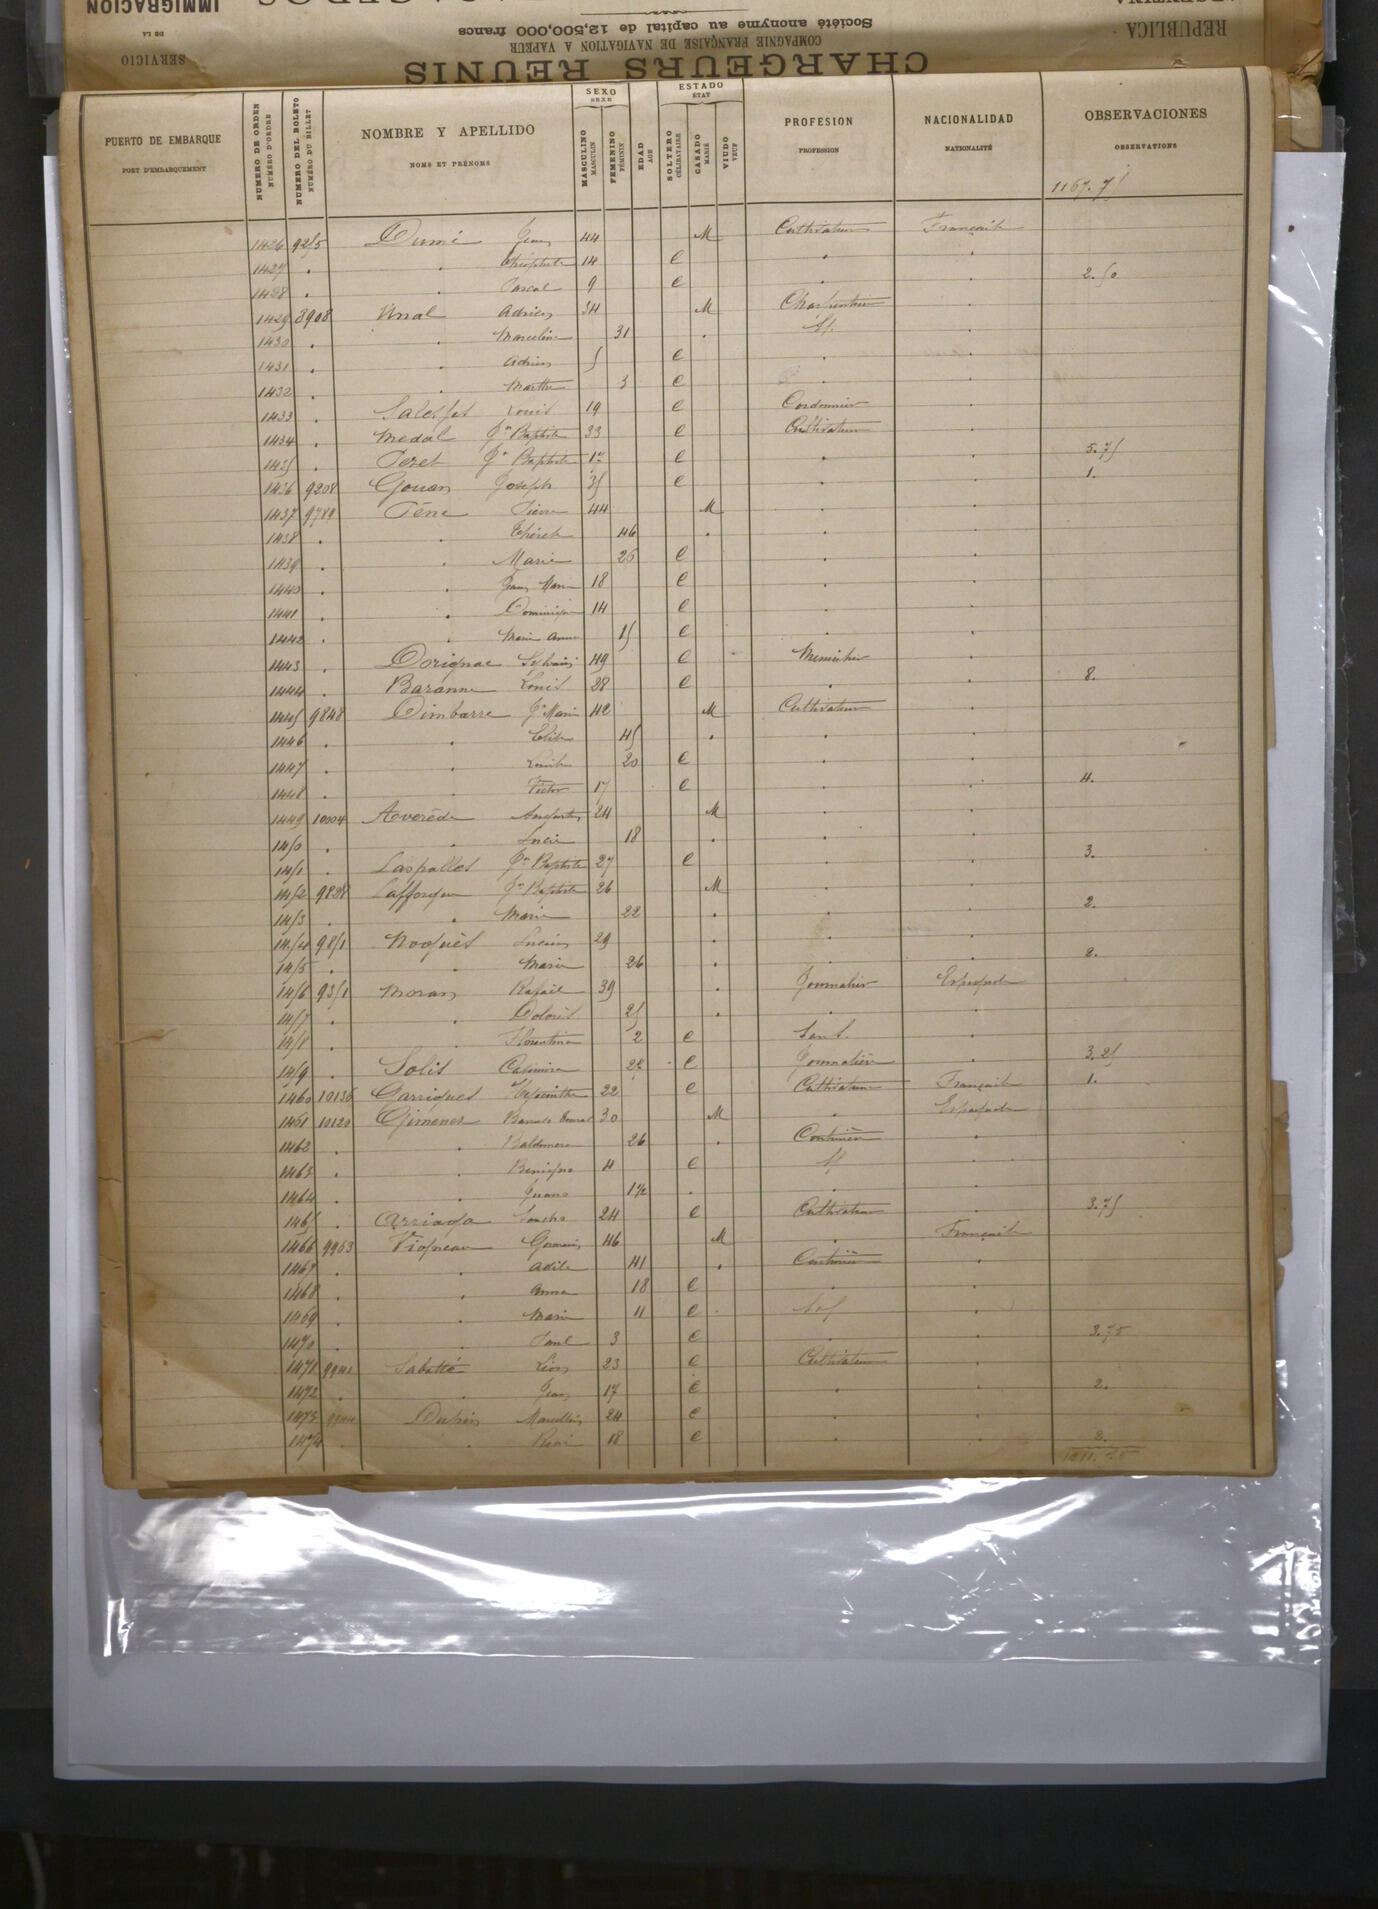 IMMIGRACION
DE LA
SERVICIO
Société anonyme au capital de 12,500,000 francs
COMPAGNIE FRANÇAISE DE NAVIGATION A VAPEUR
CHARGEURS REUNIS
REPUBLICA
PUERTO DE EMBARQUE NUMERO DE ORDEN NUMERO DEL BOLETO NOMBRE Y APELLIDO SEXO EDAD ESTADO PROFESION NACIONALIDAD OBSERVACIONES
PORT D'EMBARQUEMENT NUMÉRO D'ORDRE NUMÉRO DU BILLET NOMS ET PRÉNOMS SEXE AGE ÉTAT PROFESSION NATIONALITÉ OBSERVATIONS
MASCULINO FEMENINO SOLTERO CASADO VIUDO
MASCULIN FÉMININ CÉLIBATAIRE MARIÉ VEUF
1167.75
1426 9255 Dumé Jean 44 M Cultivateur Française
1427 . . Théophile 14 C . .
1428 . . Pascal 9 C . . 2.50
1429 8908 Viral Adrien 34 M Charpentier .
1430 . . Marceline 31 . Sp. .
1431 . . Adrien 5 C . .
1432 . . Marthe 3 C . .
1433 . Louis 19 C Cordonnier .
1434 . Medal Jn Baptiste 33 C Cultivateur .
1435 . Peret Jn Baptiste 17 C . . 5.75
1436 9208 Gouan Joseph 35 C . . 1.
1437 9789 Péne Pierre 44 M . .
1438 . . Thérèse 46 . . .
1439 . . Marie 26 C . .
1440 . . Jean Marie 18 C . .
1441 . . Dominique 14 C . .
1442 . . Marie Anne 15 C . .
1443 . Dorignac Sylvain 49 C Menuisier .
1444 . Baranne Louis 28 C . . 8.
1445 9848 Dimbarre Jn Marie 42 M Cultivateur .
1446 . . 45 . . .
1447 . . Louise 20 C . .
1448 . . Victor 17 C . . 4.
1449 10004 Averède 24 M . .
1450 . . Lucie 18 . . .
1451 . Laspalles Jn Baptiste 27 C . . 3.
1452 9828 Lafforgue Jn Baptiste 26 M . .
1453 . . Marie 22 . . . 2.
1454 9851 Noguès Lucien 29 . . .
1455 . . Marie 26 . . . 2.
1456 9351 Moran Rafael 39 . Journalier Espagnole
1457 . . Dolorès 25 . . .
1458 . . Florentina 2 C Sans .
1459 . Solis Casimira 22 C Journalière . 3.25
1460 10136 Garrigues Hyacinthe 22 C Cultivateur Française 1.
1461 10120 Gimenez 30 M . Espagnole
1462 . . Baldomera 26 . Couturière .
1463 . . Benigno 4 C Sp .
1464 . . Juana 1½ . . .
1465 . Arriaga Sancho 24 C Cultivateur . 3.75
1466 9963 Vigneau Germain 46 M . Française
1467 . . Adèle 41 . Couturière .
1468 . . Anna 18 C . .
1469 . . Marie 11 C .
1470 . . Paul 3 C . . 3.75
1471 9940 Sabatté Léon 23 C Cultivateur .
1472 . . Jean 17 C . . 2.
1473 Dupin Marcellin 24 C . .
1474 . . René 18 C . . 2.